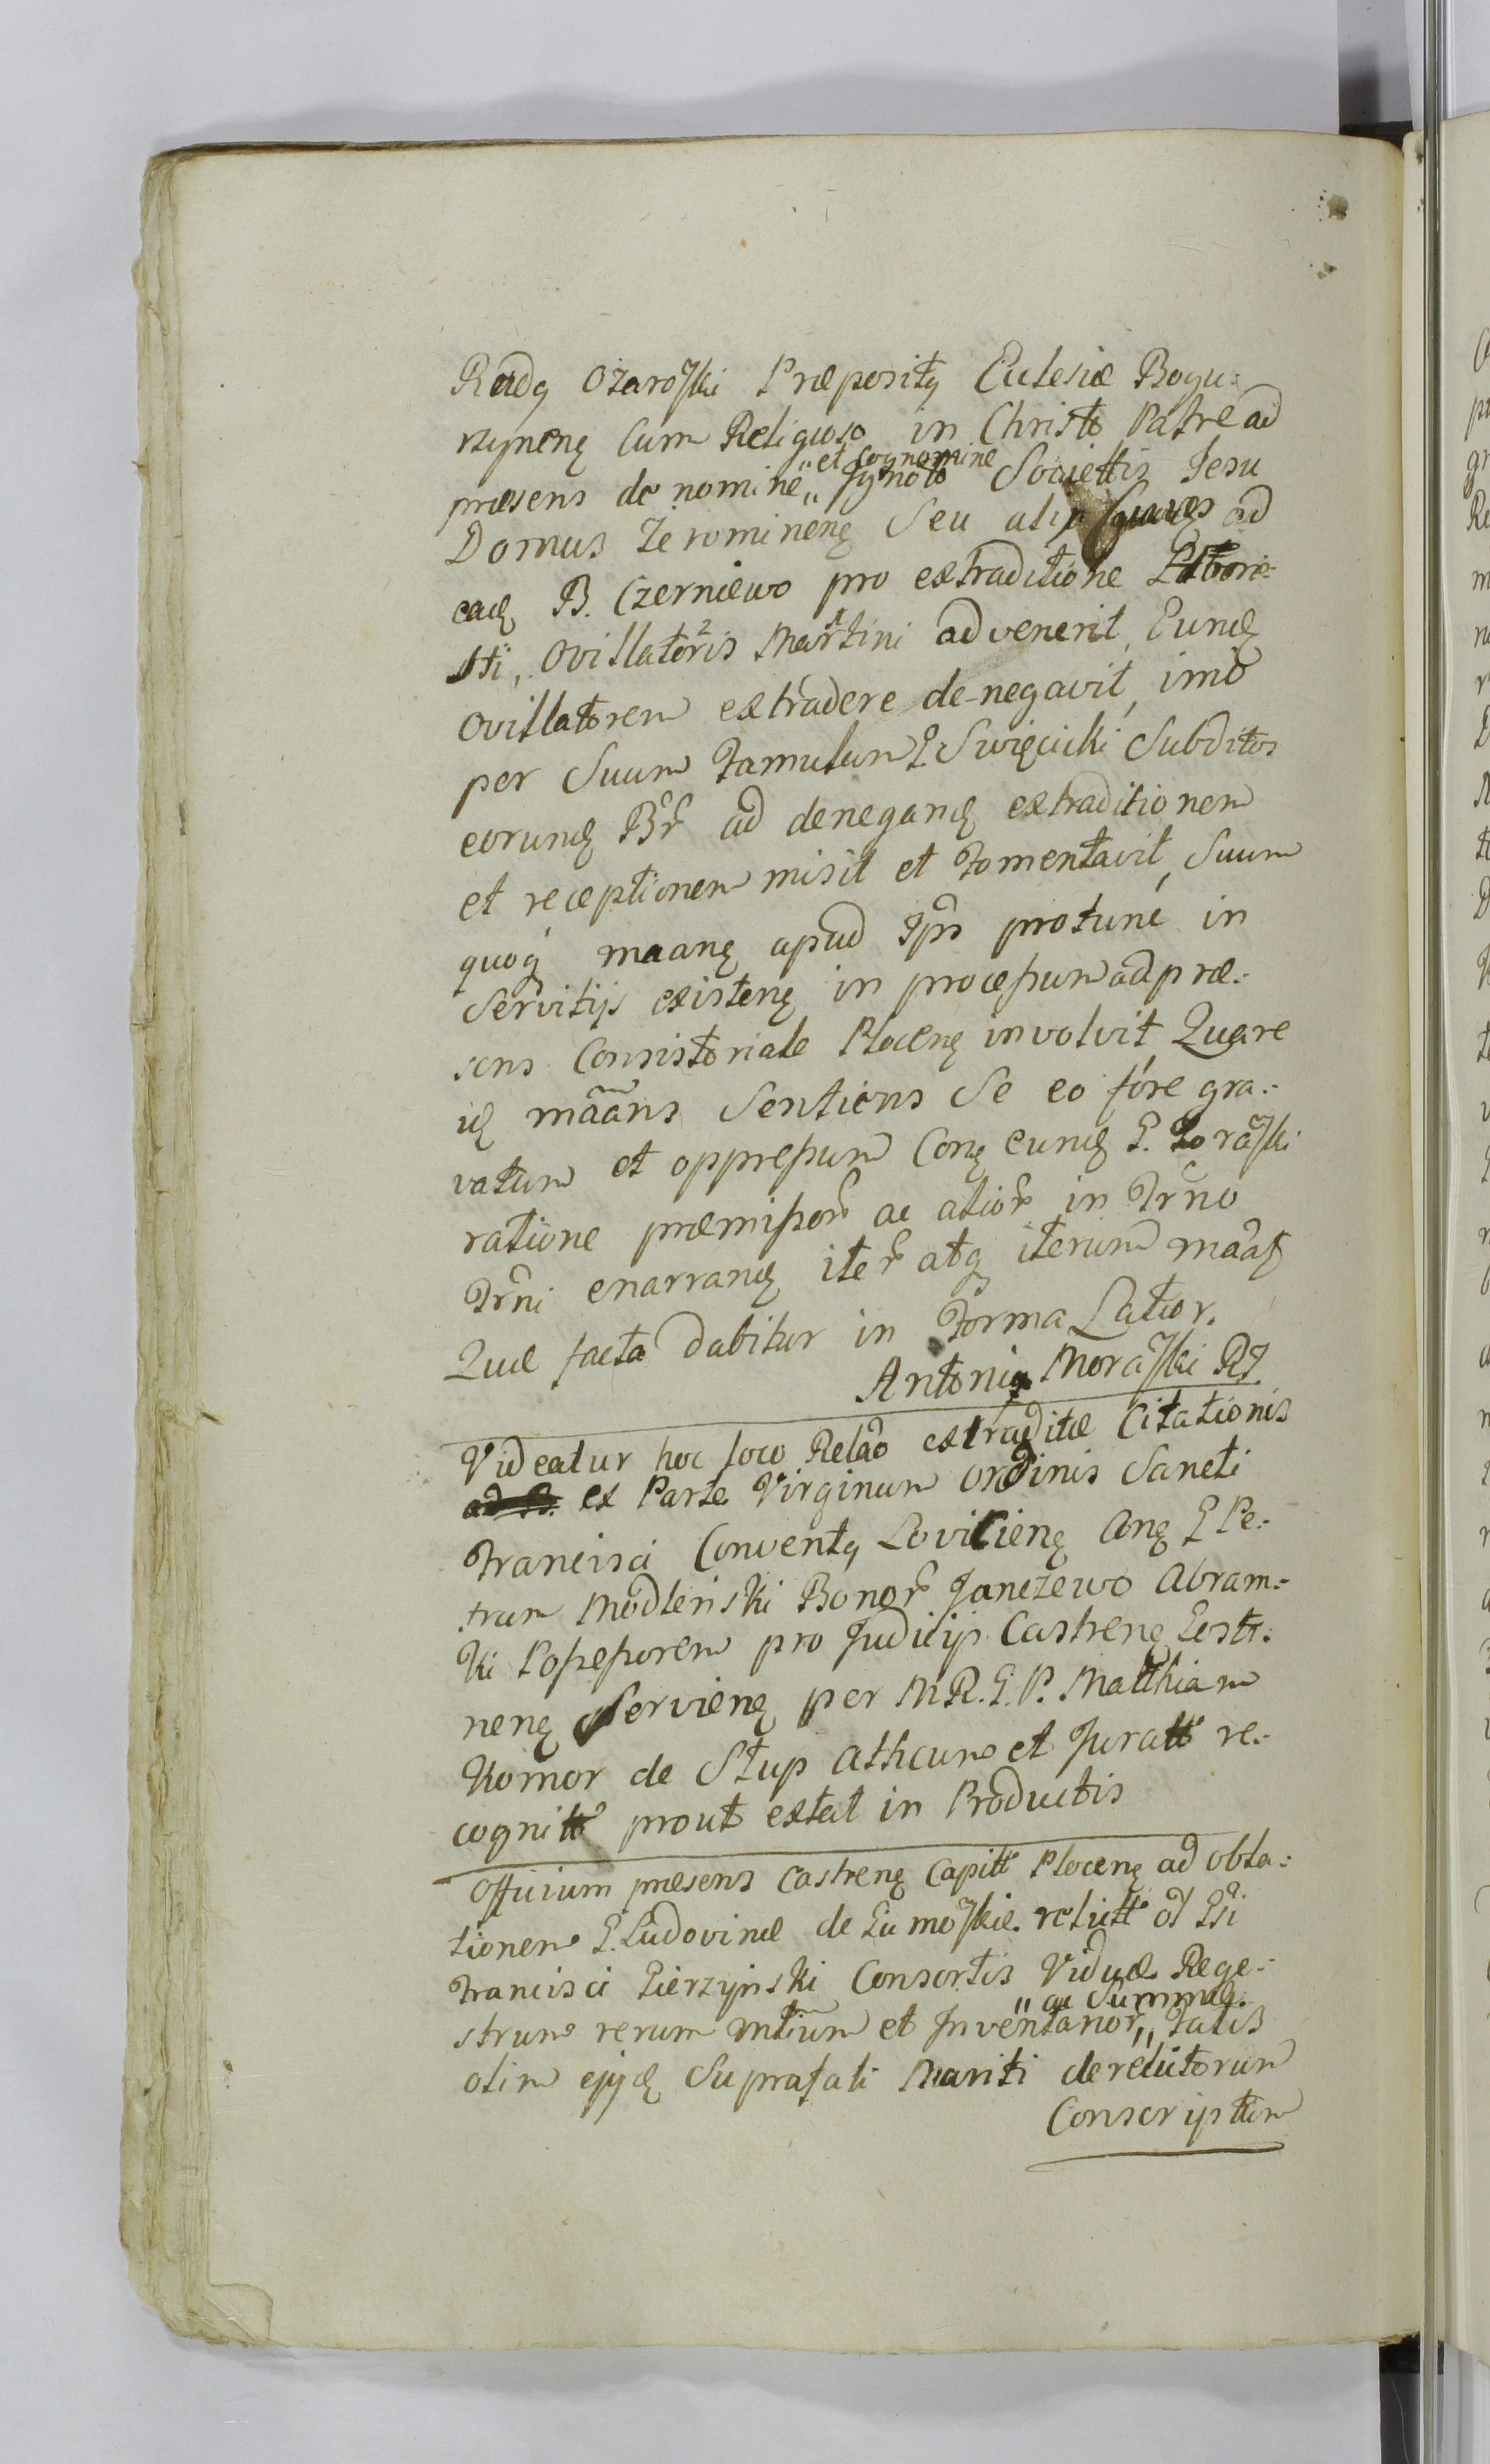 Radą Ożaroſki Præposity Ecclesiæ Bogu-
rzynenę Cum Religioso in Christo Patre ad
præsens de nomine „et Cognomine„ Jgnoto Societtis Jesu
Domus Żerominenę Seu alip ad
eadę B. Czerniewo pro extraditione Laborio-
sti, Ovillatoris 2 Martini 1 advenerit, Eundę
Ovillatorem extradere de-negavit, imò
per Suum Famulum G. Swięcicki Subditos
eorundę Br̃ ad denegandę extraditionem
et receptionem misit et Fomentavit, Suum
quoq́ maanę apud Ips̃ protunc in
Servitijs existenę in processum ad præ-
sens Consistoriale Plocenę involvit Quare
idę mãans Sentiens Se eo fóre gra-
vatum et oppressum Conę eundę G.
ratione præmissor̃ ac alior̃ in Fr̃no
Fr̃ni enarrandę iter̃ atq iterum mãat
Quæ facta dabitur in Forma Latior.
Antonią Moraſki RJ.
Videatur hoc loco Relaõ extraditæ Citationis
ex Parte Virginum Ordinis Sancti
Francisci Conventą Lovicienę Conę G Pe-
trum Modleński Bonor̃ Janczewo Abram-
ki Possessorem pro Judicijs Castrenę Gostt-
nenę Servienę per MR. G. P. Matthiam
Komor de Stup Athcum et Juratt re-
cognitt prout extat in Productis
Officium præsens Castrenę Capitt Plocenę ad obla-
tionem G. Ludovinæ de Gumoſkie. relictt ol Gsi
Francisci Pierzynski Consortis Viduæ Rege-
strum rerum mtium et Inventarior̃ „ac Summaę„ Talis
olim ejusdę Suprafati Mariti derelictorum
Conscriptum